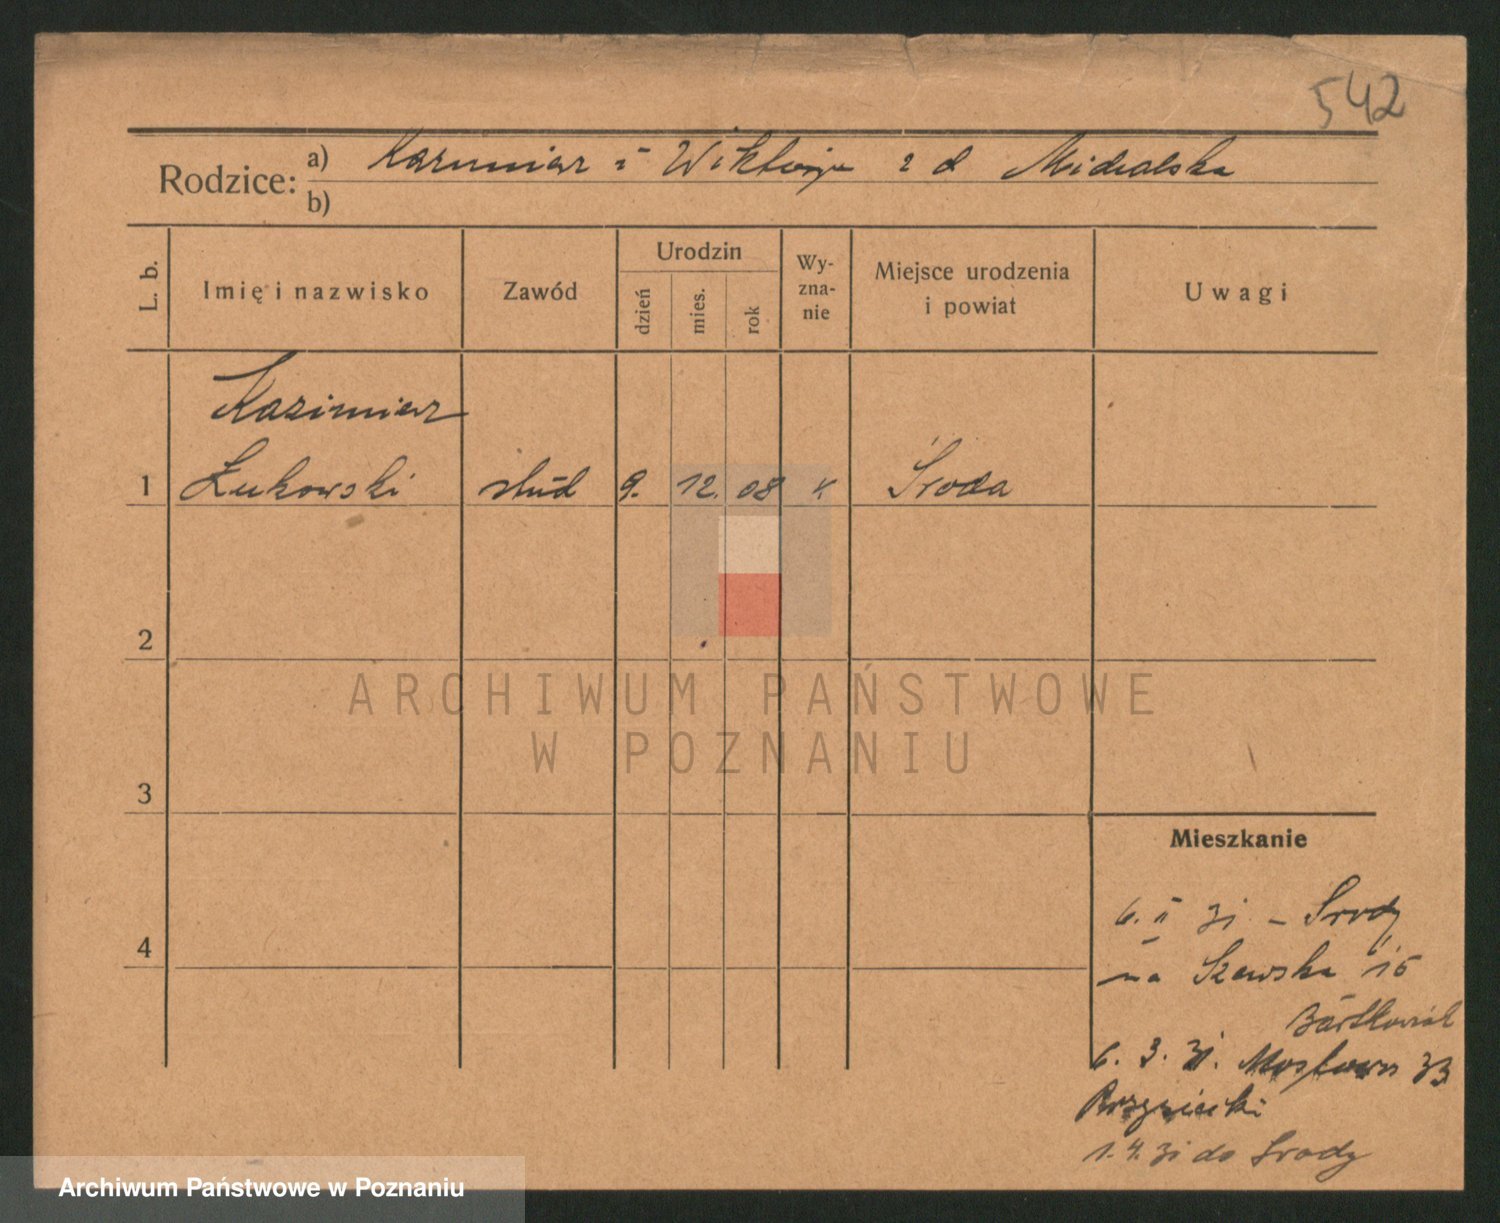 542
Rodzice: a) Kazimierz i Wiktorja z d
b)
L. b.
Imię i nazwisko
Zawód
Urodzin
dzień
mies.
rok
Wy-
zna-
nie
Miejsce urodzenia
i powiat
Uwagi
Kazimierz
1 Łukowski stud 9. 12. 08 k Środa
2
3
4
Mieszkanie
6. II 31 – Środy
na Szewska 15
Bartkowiak
6. 3. 31. Mostowa 33
1.4.31 do Środy
ARCHIWUM PAŃSTWOWE
W POZNANIU
Archiwum Państwowe w Poznaniu